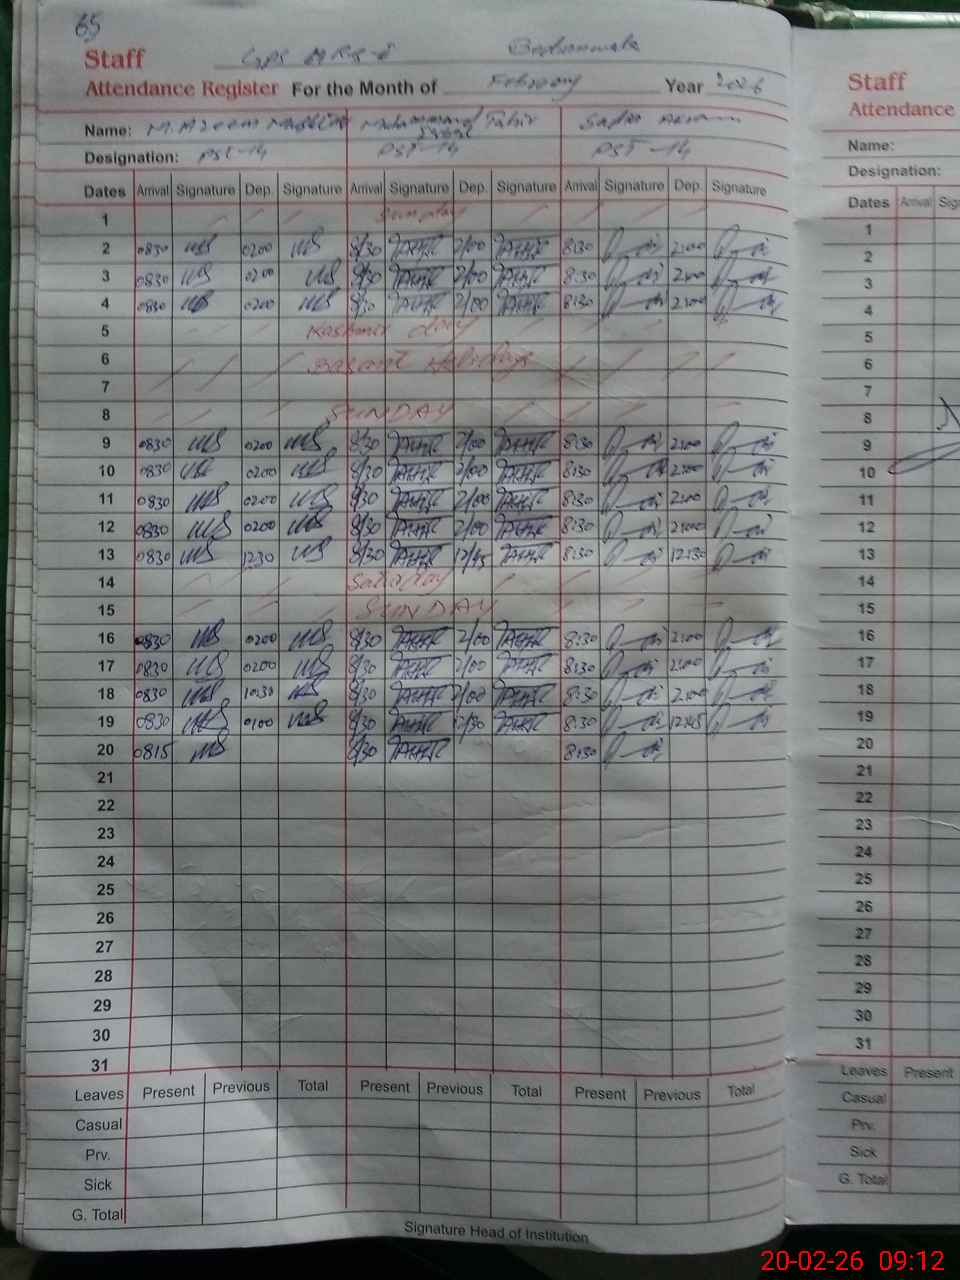 65
Staff
Attendance Register For the Month of February Year 2026
Name: M. Azeem Muhammad Tahir Safdar Akram
Designation: PST-14 PST-14 PST-14
Dates Arrival Signature Dep. Signature Arrival Signature Dep. Signature Arrival Signature Dep. Signature
1 Sunday
2 0830 0200 8/30 2/00 8:30 2:00
3 0830 0200 8/30 2/00 8:30 2:00
4 0830 0200 8/30 2/00 8:30 2:00
5 Kashmir day
6 Basant Holidays
7
8 SUNDAY
9 0830 0200 8/30 2/00 8:30 2:00
10 0830 0200 8/30 2/00 8:30 2:00
11 0830 0200 8/30 2/00 8:30 2:00
12 0830 0200 8/30 2/00 8:30 2:00
13 0830 1230 8/30 12/45 8:30 12:30
14 Saturday
15 SUNDAY
16 0830 0200 8/30 2/00 8:30 2:00
17 0830 0200 8/30 2/00 8:30 2:00
18 0830 1030 8/30 2/00 8:30 2:00
19 0830 0100 8/30 12/30 8:30 12:45
20 0815 8/30 8:30
21
22
23
24
25
26
27
28
29
30
31
Leaves Present Previous Total Present Previous Total Present Previous Total
Casual
Prv.
Sick
G. Total
Signature Head of Institution
Staff
Attendance
Name:
Designation:
Dates Arrival
1
2
3
4
5
6
7
8
9
10
11
12
13
14
15
16
17
18
19
20
21
22
23
24
25
26
27
28
29
30
31
Leaves Present
Casual
Prv.
Sick
G. Total
20-02-26 09:12